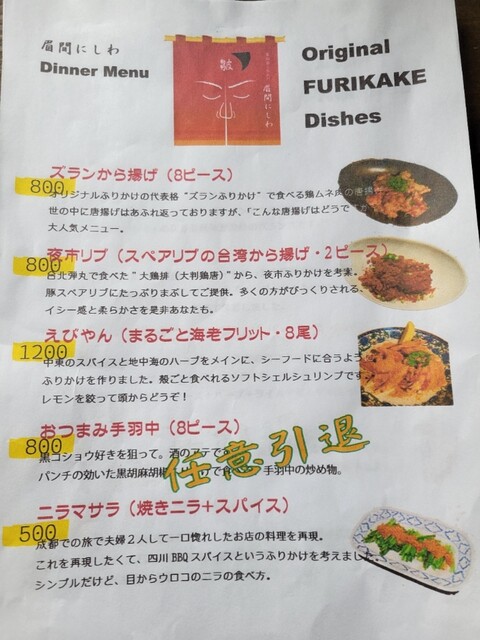 眉間にしわ
Dinner Menu
皺
眉間にしわ
Original
FURIKAKE
Dishes
ズランから揚げ（8ピース）
800
オリジナルふりかけの代表格“ズランふりかけ”で食べる鶏ムネ肉の唐揚
世の中に唐揚げはあふれ返っておりますが、「こんな唐揚げはどうで
大人気メニュー。
夜市リブ（スペアリブの台湾から揚げ・2ピース）
800
台北弾丸で食べた“大鶏排（大判鶏唐）”から、夜市ふりかけを考案。
豚スペアリブにたっぷりまぶしてご提供。多くの方がびっくりされる、
イシー感と柔らかさを是非あなたも。
えびやん（まるごと海老フリット・8尾）
1200
中東のスパイスと地中海のハーブをメインに、シーフードに合うよう
ふりかけを作りました。殻ごと食べれるソフトシェルシュリンプです
レモンを絞って頭からどうぞ！
おつまみ手羽中（8ピース）
800
黒コショウ好きを狙って。酒のアテで
パンチの効いた黒胡麻胡椒 で食 手羽中の炒め物。
任意引退
ニラマサラ（焼きニラ+スパイス）
500
成都での旅で夫婦2人して一口惚れしたお店の料理を再現。
これを再現したくて、四川BBQスパイスというふりかけを考えました
シンプルだけど、目からウロコのニラの食べ方。